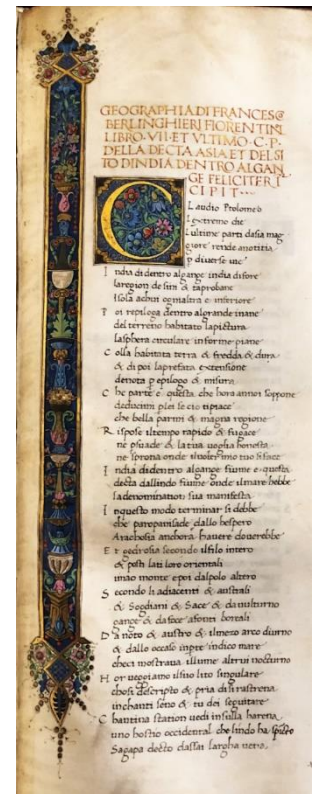 GEOGRAPHIA DI FRANCESCO
BERLINGHIERI FIORENTINI
LIBRO·VII·ET VLTIMO·C·P·
DELLA DECTA ASIA ET DEL SI
TO DINDIA DENTRO ALGAN
GE FELICITER I
CIPIT
C
Laudio Ptolomeo
lextremo che
lultime parti dasia mag
giore rende anotitia
p diuerse uie
India didentro algange india difore
laregion de sini & taprobane
Isola achui ognialtra e inferiore
Poi repiloga dentro algrande inane
del terreno habitato lapictura
lasphera circulare in forme piane
Colla habitata terra & fredda & dura
& di poi laprefata extensione
denota p epilogo & misura
Che parte e questa che hora annoi soppone
deducim plei se cio tipiace
che bella parmi & magna regione
Rispose iltempo rapido & fugace
ne psuade & latua uoglia honesta
ne sprona onde iluoltr imo tuo si face
India didentro algange fiume e questa
decta dallindo fiume onde ilmare hebbe
la denomination sua manifesta
Inquesto modo terminar si debbe
che paropanisade dallo hespero
Arachosia anchora hauere douerebbe
Et gedrosia secondo ilfilo intero
& posti lati loro orientali
imao monte epoi dalpolo altero
Secondo li adiacenti & australi
& Sogdiani & Sace & da uulturno
gange & da sace afonti boreali
Da noto & austro & ilmezo arco diurno
& dallo occaso inpte indico mare
checi mostraua illume altrui nocturno
Hor ueggiamo ilsuo lito singulare
chosi descripto & pria di sirastrena
inchanti sono & tu dei seguitare
Chantina station uedi insulla harena
uno hostio occidental che lindo ha spicto
Sagapa decto dassai largha uena